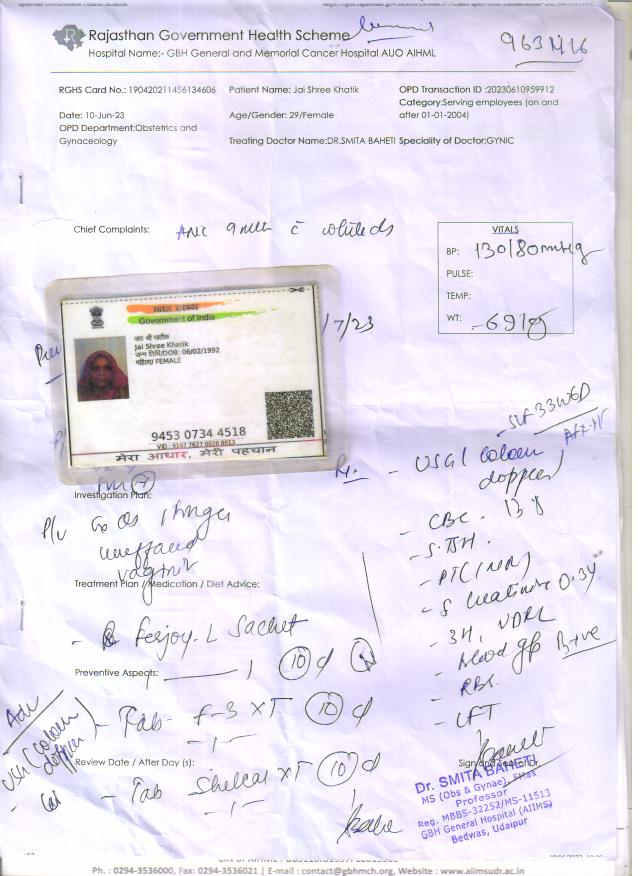 Rajasthan Government Health Scheme
Hospital Name:- GBH General and Memorial Cancer Hospital AUO AIHML
963416
RGHS Card No.: 190420211456134606
Patient Name: Jai Shree Khatik
OPD Transaction ID :20230610959912
Category:Serving employees (on and after 01-01-2004)
Date: 10-Jun-23
Age/Gender: 29/Female
OPD Department:Obstetrics and Gynaceology
Treating Doctor Name:DR.SMITA BAHETI
Speciality of Doctor:GYNIC
Chief Complaints:
ANC
VITALS
BP: 130/80mmHg
PULSE:
TEMP:
WT:
/7/23
भारत सरकार
Government of India
जय श्री खटीक
Jai Shree Khatik
जन्म तिथि/DOB: 06/02/1992
महिला/ FEMALE
9453 0734 4518
VID : 9167 7627 0028 8013
मेरा आधार, मेरी पहचान
33W6D
- USG (colour doppler)
Investigation Plan:
P/V
- CBC.
- S.TSH.
- PT(INR)
- S creatinine 0.34
- 3H, VDRL
- Blood gp B+ve
- RBS
- LFT
Treatment Plan / Medication / Diet Advice:
- Sachet
Preventive Aspects:
10 d
- Tab F-3 XT 10 d
Adv
USG (colour doppler)
Review Date / After Day (s):
- Tab Shelcal XT 10 d
Dr. SMITA BAHETI
MS (Obs & Gynae),
Professor
Reg. MBBS-32252/MS-11513
GBH General Hospital (AIIMS)
Bedwas, Udaipur
Ph. : 0294-3536000, Fax: 0294-3536021 | E-mail : contact@gbhmch.org, Website : www.aiimsudr.ac.in